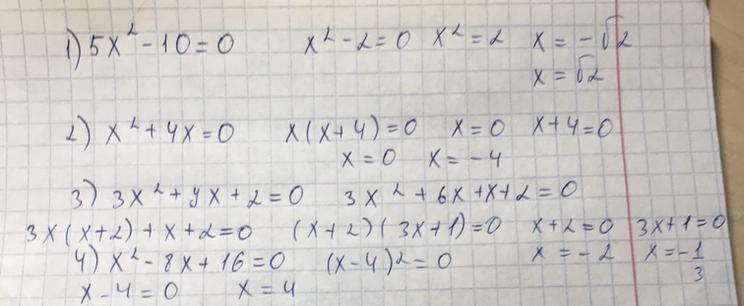 1) 5x² - 10 = 0 x² - 2 = 0 x² = 2 x = -√2
x = √2
2) x² + 4x = 0 x(x+4) = 0 x = 0 x+4 = 0
x = 0 x = -4
3) 3x² + yx + 2 = 0 3x² + 6x + x + 2 = 0
3x(x+2) + x + 2 = 0 (x+2)(3x+1) = 0 x+2 = 0 3x+1 = 0
4) x² - 8x + 16 = 0 (x-4)² = 0 x = -2 x = -1/3
x - 4 = 0 x = 4